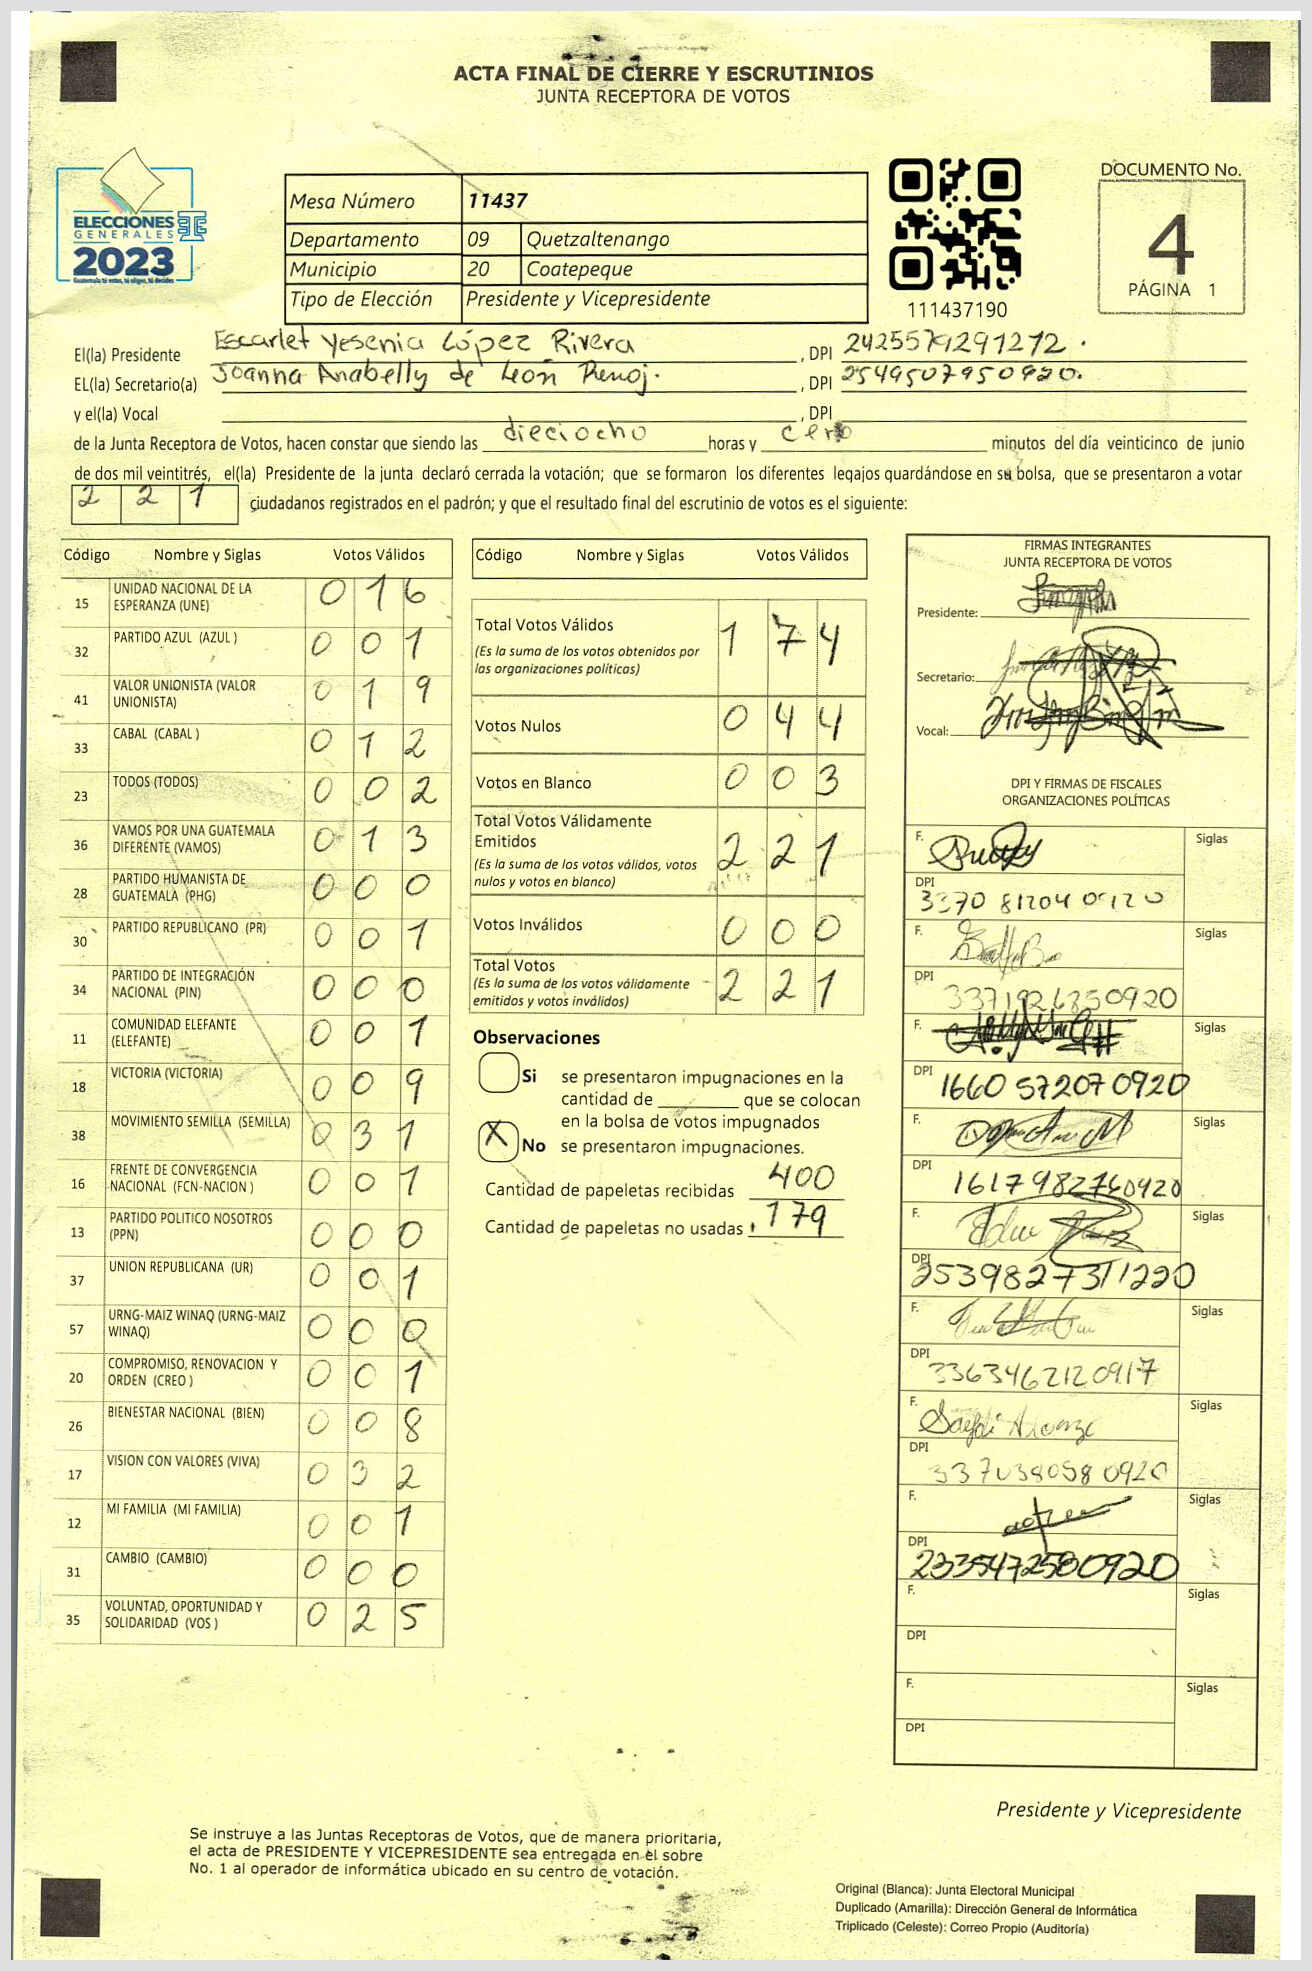 ACTA FINAL DE CIERRE Y ESCRUTINIOS
JUNTA RECEPTORA DE VOTOS
ELECCIONES
GENERALES
2023
Mesa Número 11437
Departamento 09 Quetzaltenango
Municipio 20 Coatepeque
Tipo de Elección Presidente y Vicepresidente
111437190
DOCUMENTO No.
4
PÁGINA 1
El(la) Presidente Escarlet Yesenia López Rivera, DPI 2425579291272.
EL(la) Secretario(a) Joanna Anabelly de León Renoj., DPI 2549507950920.
y el(la) Vocal , DPI
de la Junta Receptora de Votos, hacen constar que siendo las dieciocho horas y cero minutos del día veinticinco de junio
de dos mil veintitrés, el(la) Presidente de la junta declaró cerrada la votación; que se formaron los diferentes legajos guardándose en su bolsa, que se presentaron a votar
2 2 1 ciudadanos registrados en el padrón; y que el resultado final del escrutinio de votos es el siguiente:
Código Nombre y Siglas Votos Válidos
15 UNIDAD NACIONAL DE LA ESPERANZA (UNE) 0 1 6
32 PARTIDO AZUL (AZUL ) 0 0 1
41 VALOR UNIONISTA (VALOR UNIONISTA) 0 1 9
33 CABAL (CABAL ) 0 1 2
23 TODOS (TODOS) 0 0 2
36 VAMOS POR UNA GUATEMALA DIFERENTE (VAMOS) 0 1 3
28 PARTIDO HUMANISTA DE GUATEMALA (PHG) 0 0 0
30 PARTIDO REPUBLICANO (PR) 0 0 1
34 PARTIDO DE INTEGRACIÓN NACIONAL (PIN) 0 0 0
11 COMUNIDAD ELEFANTE (ELEFANTE) 0 0 1
18 VICTORIA (VICTORIA) 0 0 9
38 MOVIMIENTO SEMILLA (SEMILLA) 0 3 1
16 FRENTE DE CONVERGENCIA NACIONAL (FCN-NACION ) 0 0 1
13 PARTIDO POLITICO NOSOTROS (PPN) 0 0 0
37 UNION REPUBLICANA (UR) 0 0 1
57 URNG-MAIZ WINAQ (URNG-MAIZ WINAQ) 0 0 0
20 COMPROMISO, RENOVACION Y ORDEN (CREO ) 0 0 1
26 BIENESTAR NACIONAL (BIEN) 0 0 8
17 VISION CON VALORES (VIVA) 0 3 2
12 MI FAMILIA (MI FAMILIA) 0 0 1
31 CAMBIO (CAMBIO) 0 0 0
35 VOLUNTAD, OPORTUNIDAD Y SOLIDARIDAD (VOS ) 0 2 5
Código Nombre y Siglas Votos Válidos
Total Votos Válidos 1 7 4
(Es la suma de los votos obtenidos por
las organizaciones políticas)
Votos Nulos 0 4 4
Votos en Blanco 0 0 3
Total Votos Válidamente
Emitidos 2 2 1
(Es la suma de los votos válidos, votos
nulos y votos en blanco)
Votos Inválidos 0 0 0
Total Votos 2 2 1
(Es la suma de los votos válidamente
emitidos y votos inválidos)
Observaciones
Si se presentaron impugnaciones en la
cantidad de ________ que se colocan
en la bolsa de votos impugnados
X No se presentaron impugnaciones.
Cantidad de papeletas recibidas 400
Cantidad de papeletas no usadas 179
FIRMAS INTEGRANTES
JUNTA RECEPTORA DE VOTOS
Presidente:
Secretario:
Vocal:
DPI Y FIRMAS DE FISCALES
ORGANIZACIONES POLÍTICAS
F. Siglas
DPI
3370 81204 0920
F. Siglas
DPI
F. Siglas
DPI
1660 57207 0920
F. Siglas
DPI
1617982760920
F. Siglas
DPI
2539827311220
F. Siglas
DPI
3363462120917
F. Siglas
DPI
337038058 0920
F. Siglas
DPI
2335472580920
F. Siglas
DPI
F. Siglas
DPI
Presidente y Vicepresidente
Se instruye a las Juntas Receptoras de Votos, que de manera prioritaria,
el acta de PRESIDENTE Y VICEPRESIDENTE sea entregada en el sobre
No. 1 al operador de informática ubicado en su centro de votación.
Original (Blanca): Junta Electoral Municipal
Duplicado (Amarilla): Dirección General de Informática
Triplicado (Celeste): Correo Propio (Auditoría)